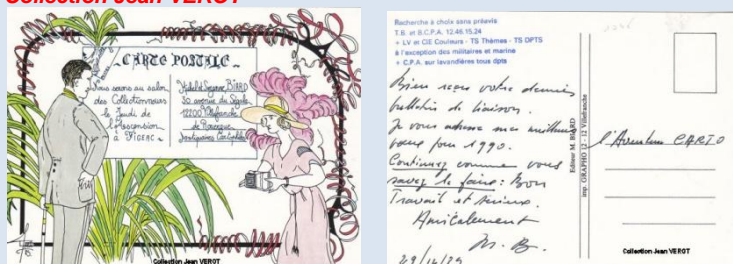 Collection Jean VEROT
CARTE POSTALE
Nous serons au salon
des Collectionneurs
le Jeudi de
l'Ascension
à FIGEAC
Michel et Suzanne BIARD
30 avenue du Ségala
12200 Villefranche
de Rouergue
Collection Jean VEROT
Recherche à choix sans préavis
T.B. et B.C.P.A. 12.46.15.24
+ LV et CIE Couleurs - TS Thèmes - TS DPTS
à l'exception des militaires et marine
+ C.P.A. sur lavandières tous dpts
Bien reçu votre dernier
bulletin de liaison.
Je vous adresse mes meilleurs
voeux pour 1990.
Continuez comme vous
savez le faire : Bon
Travail et sérieux.
Amicalement
M. B.
29/12/89
Editeur M. BIARD
imp. GRAPHO 12 - 12 Villefranche
l'Aventure CARTO
Collection Jean VEROT